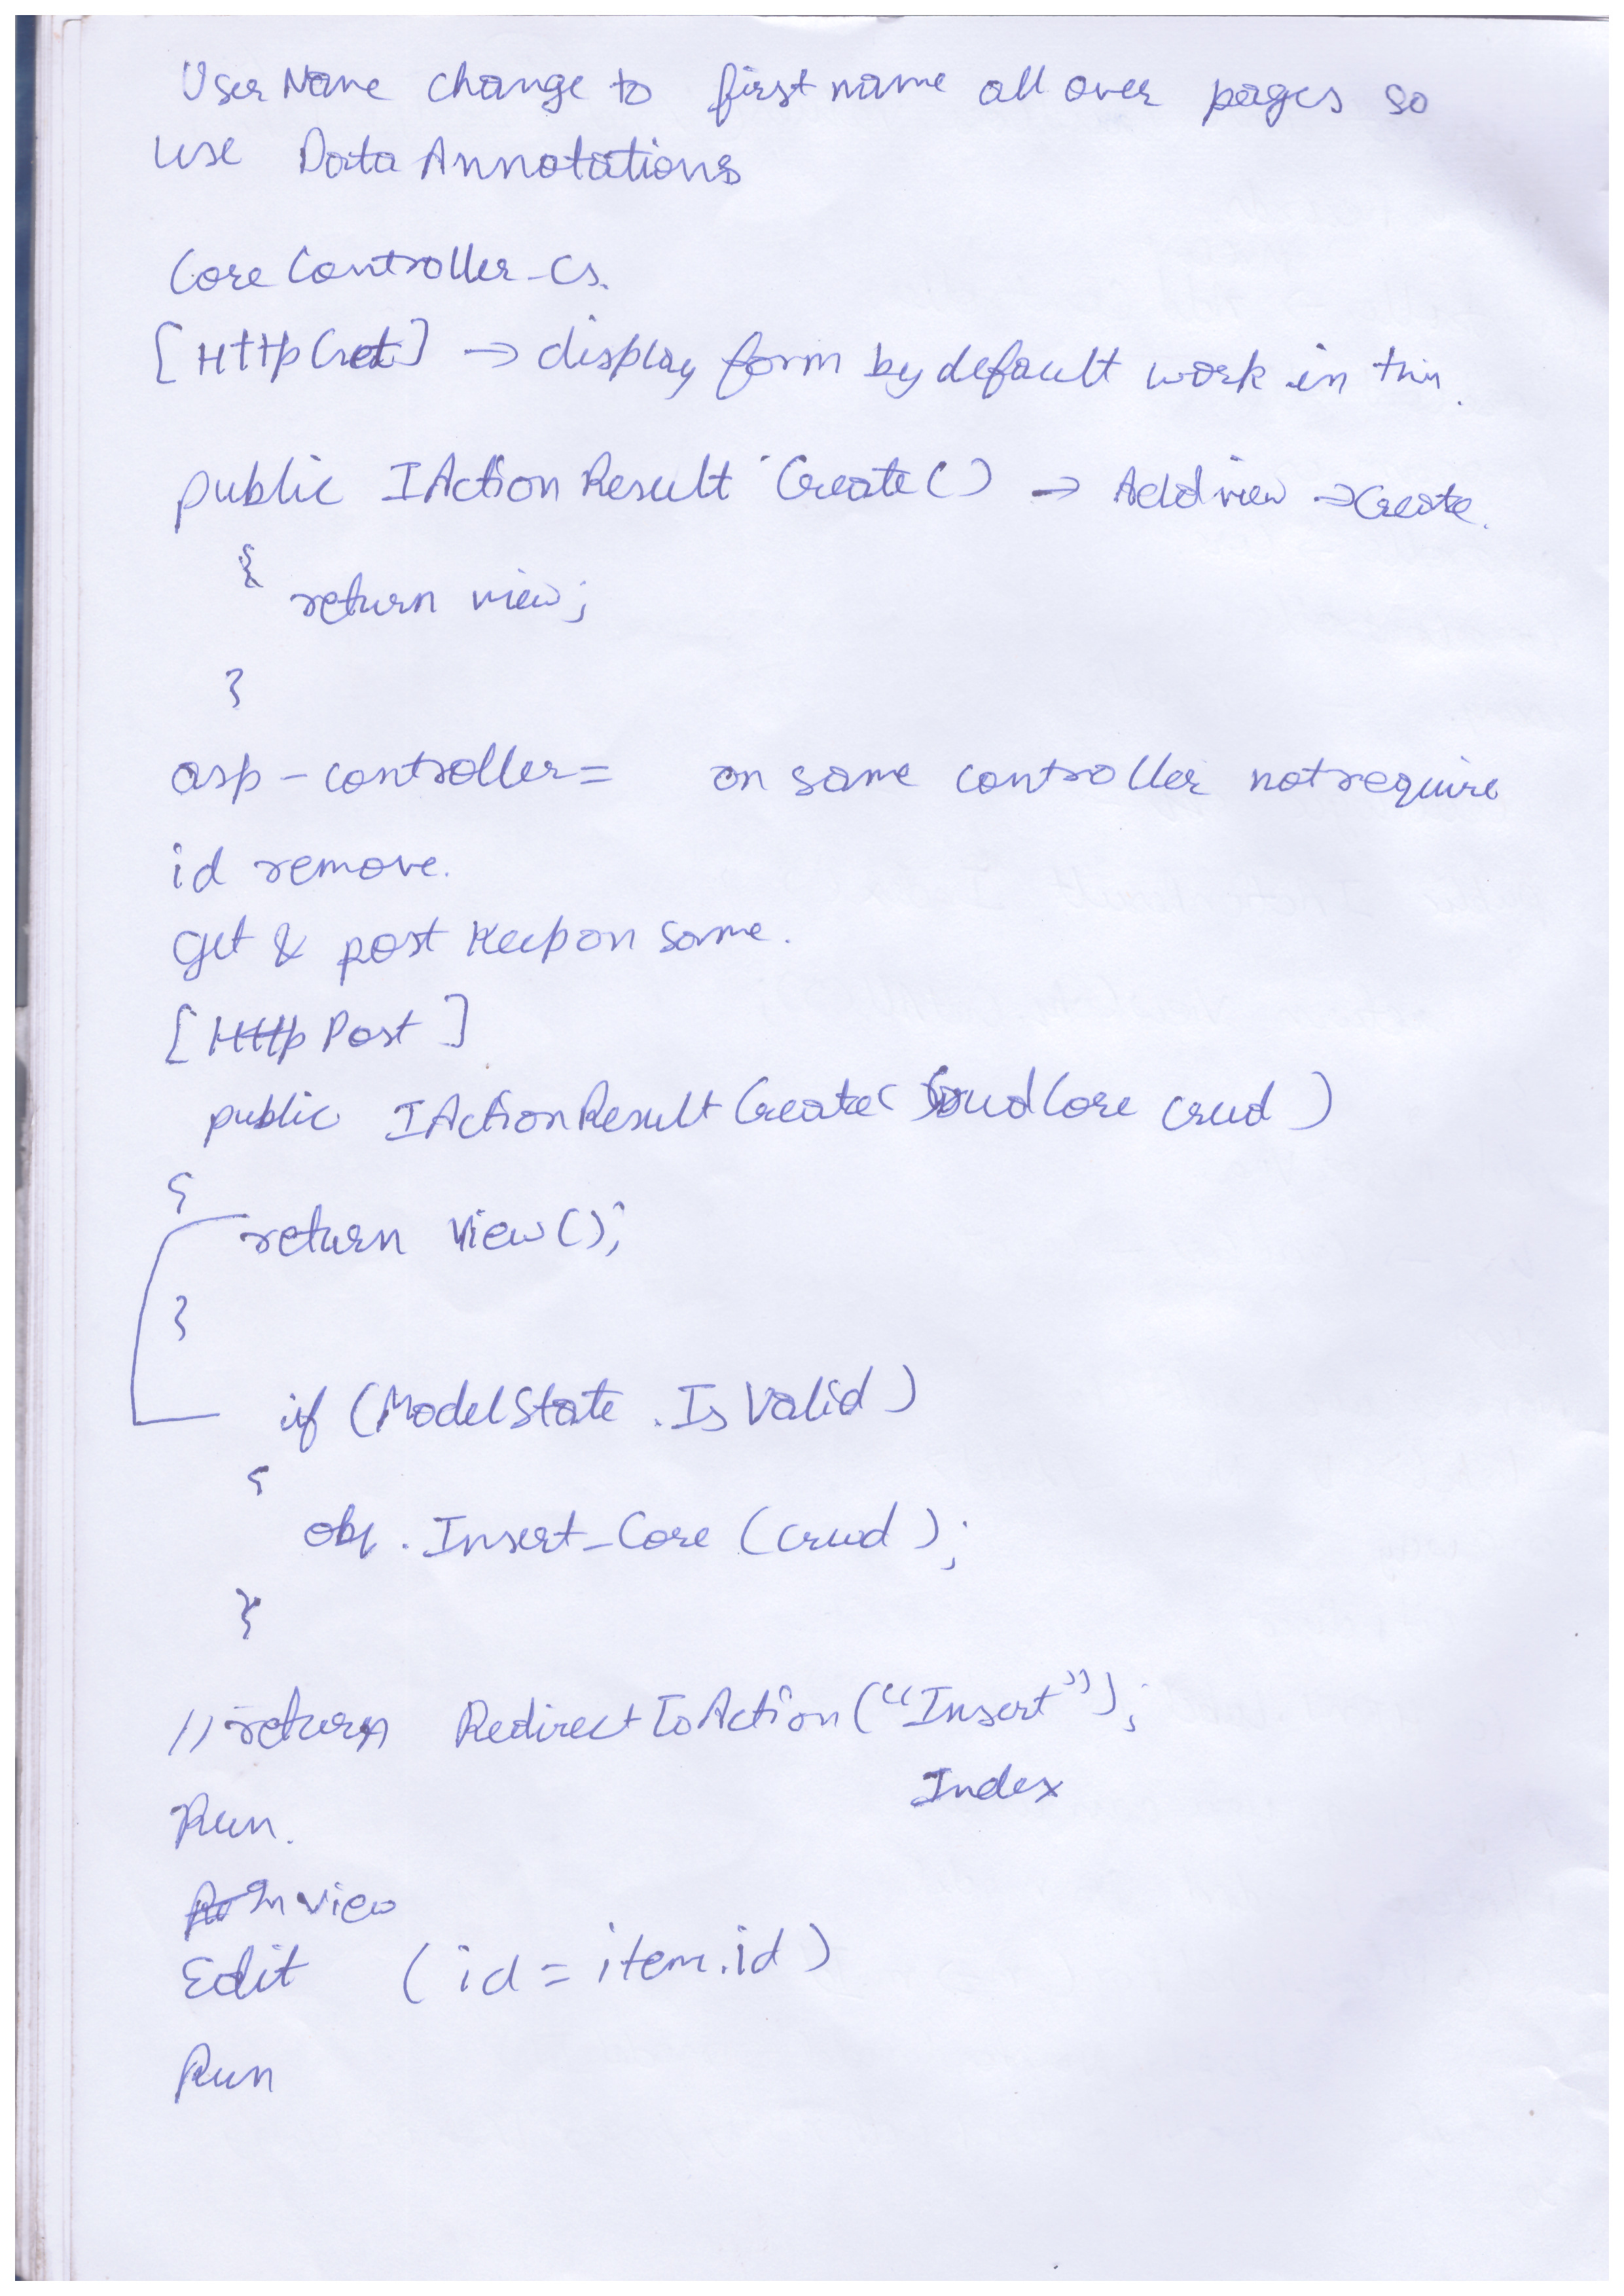 UserName change to first name all over pages so
use DataAnnotations
CoreController_cs.
[HttpGet] → display form by default work in this.
public IActionResult Create() → Add view → Create.
{
return view;
}
asp-controller= on same controller not require
id remove.
get & post keep on same.
[HttpPost]
public IActionResult Create( CrudCore crud )
{
return view();
}
if (ModelState.IsValid)
{
obj.Insert_Core (crud);
}
//return RedirectToAction("Insert");
Index
Run.
In view
Edit (id = item.id)
Run